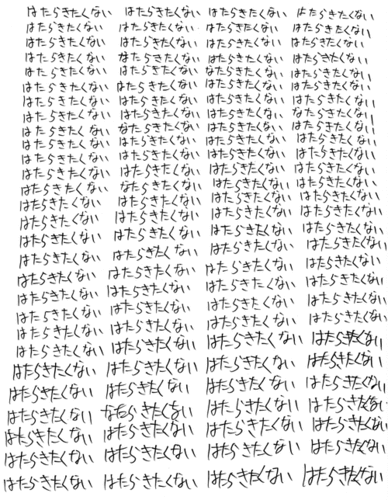 はたらきたくない はたらきたくない はたらきたくない はたらきたくない
はたらきたくない はたらきたくない はたらきたくない はたらきたくない
はたらきたくない はたらきたくない はたらきたくない はたらきたくない
はたらきたくない はたらきたくない はたらきたくない はたらきたくない
はたらきたくない はたらきたくない はたらきたくない はたらきたくない
はたらきたくない はたらきたくない はたらきたくない はたらきたくない
はたらきたくない はたらきたくない はたらきたくない はたらきたくない
はたらきたくない はたらきたくない はたらきたくない はたらきたくない
はたらきたくない はたらきたくない はたらきたくない はたらきたくない
はたらきたくない はたらきたくない はたらきたくない はたらきたくない
はたらきたくない はたらきたくない はたらきたくない はたらきたくない
はたらきたくない はたらきたくない はたらきたくない はたらきたくない
はたらきたくない はたらきたくない はたらきたくない はたらきたくない
はたらきたくない はたらきたくない はたらきたくない はたらきたくない
はたらきたくない はたらきたくない はたらきたくない はたらきたくない
はたらきたくない はたらきたくない はたらきたくない はたらきたくない
はたらきたくない はたらきたくない はたらきたくない はたらきたくない
はたらきたくない はたらきたくない はたらきたくない はたらきたくない
はたらきたくない はたらきたくない はたらきたくない はたらきたくない
はたらきたくない はたらきたくない はたらきたくない はたらきたくない
はたらきたくない はたらきたくない はたらきたくない はたらきたくない
はたらきたくない はたらきたくない はたらきたくない はたらきたくない
はたらきたくない はたらきたくない はたらきたくない はたらきたくない
はたらきたくない はたらきたくない はたらきたくない はたらきたくない
はたらきたくない はたらきたくない はたらきたくない はたらきたくない
はたらきたくない はたらきたくない はたらきたくない はたらきたくない
はたらきたくない はたらきたくない はたらきたくない はたらきたくない